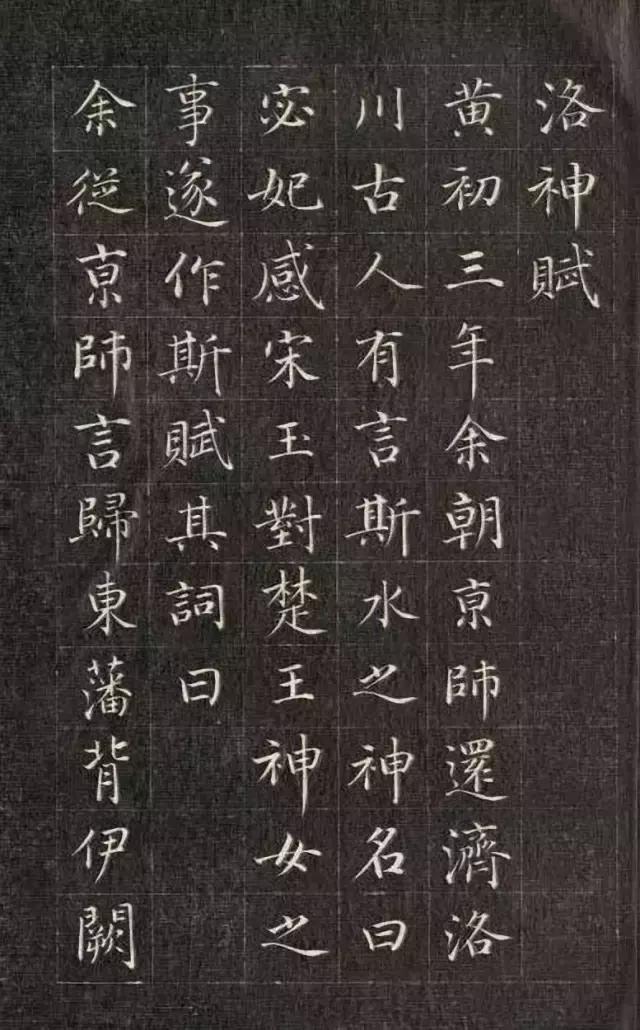 洛神賦
黄初三年余朝京師還濟洛
川古人有言斯水之神名曰
宓妃感宋玉對楚王神女之
事遂作斯賦其詞曰
余從京師言歸東藩背伊闕